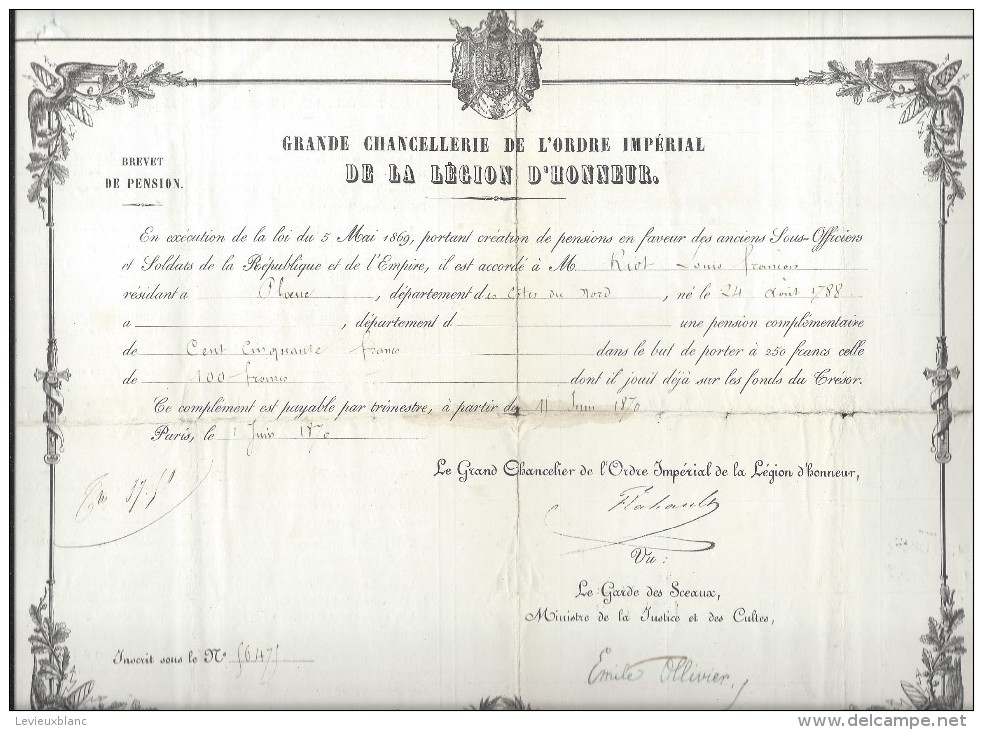 GRANDE CHANCELLERIE DE L'ORDRE IMPÉRIAL
DE LA LÉGION D'HONNEUR.
BREVET
DE PENSION.
En exécution de la loi du 5 Mai 1869, portant création de pensions en faveur des anciens Sous-Officiers
et Soldats de la République et de l'Empire, il est accordé à M. Riot Louis françois
résidant a Ploeuc, département des Côtes du Nord, né le 24 Août 1788
a , département d une pension complémentaire
de Cent Cinquante francs dans le but de porter à 250 francs celle
de 100 francs dont il jouit déjà sur les fonds du Trésor.
Ce complément est payable par trimestre, à partir du 11 Juin 1870
Paris, le 1 Juin 1870
Le Grand Chancelier de l'Ordre Impérial de la Légion d'honneur,
37.51
Flahault
Vu :
Le Garde des Sceaux,
Ministre de la Justice et des Cultes,
Inscrit sous le N°
Emile Ollivier
Levieuxblanc
delcampe.net